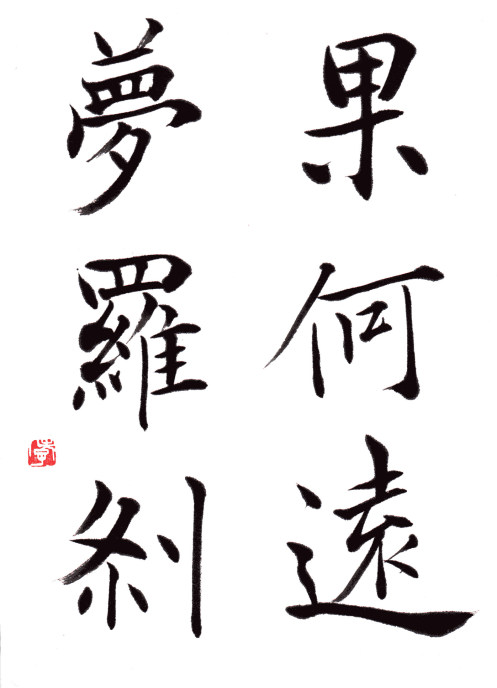 果何遠
夢羅刹